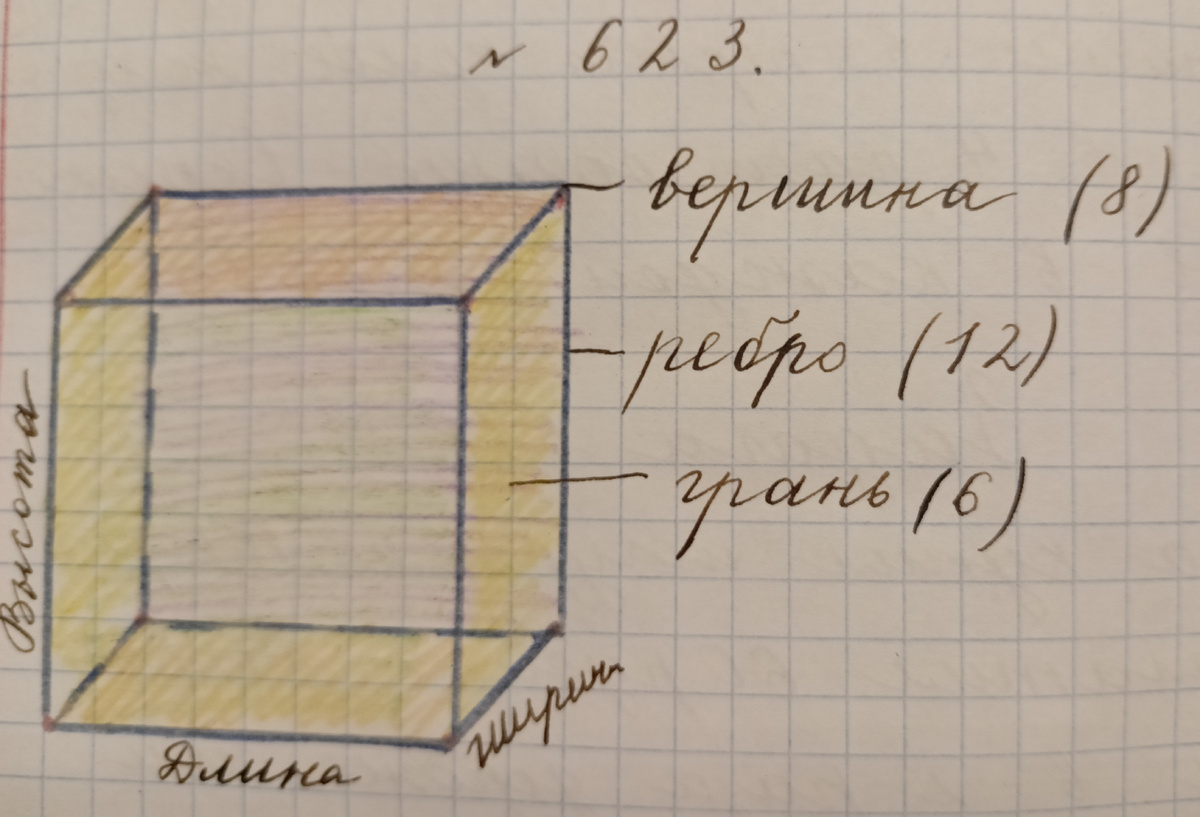 № 623.
вершина (8)
ребро (12)
грань (6)
Высота
ширин
Длина